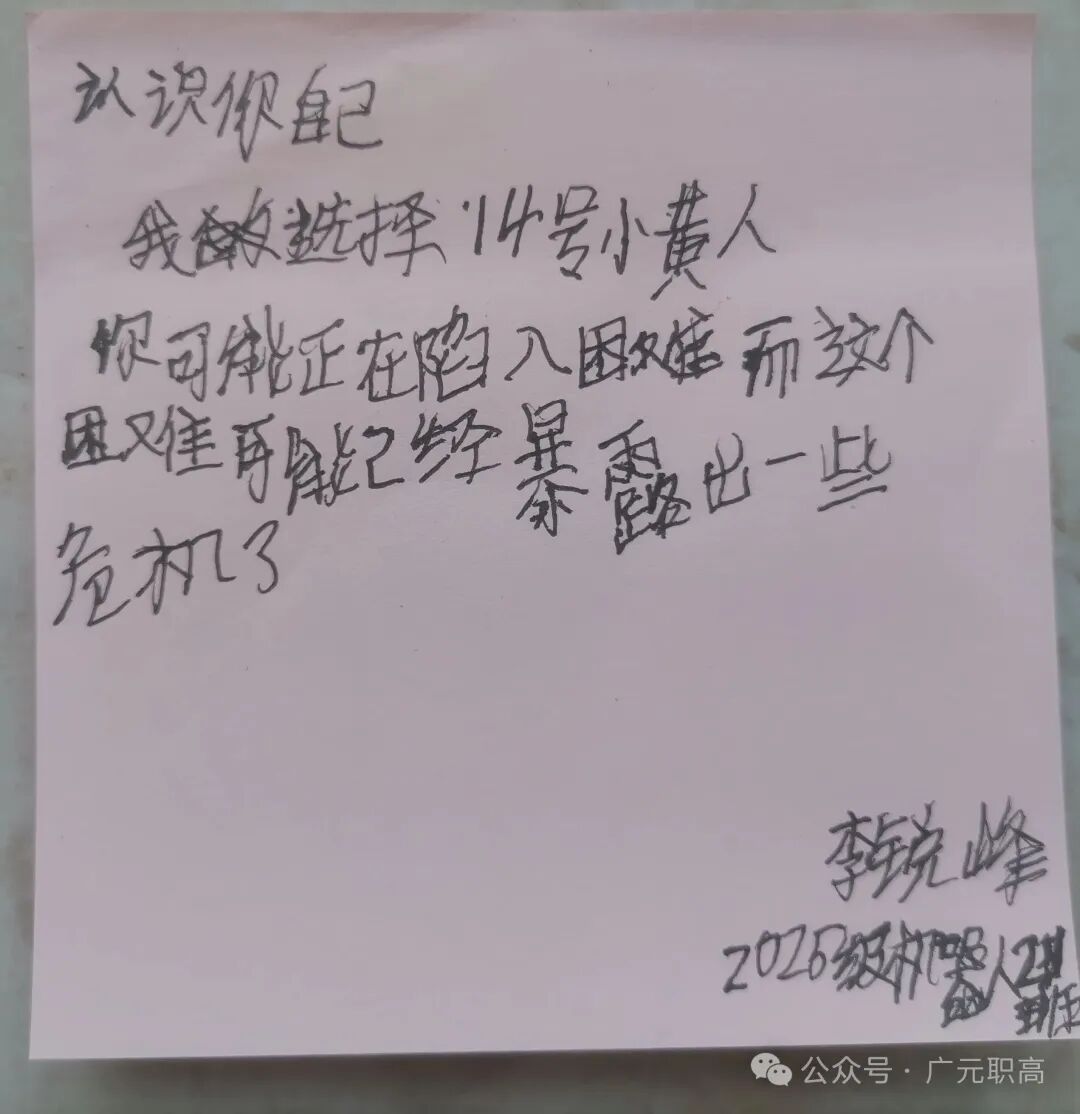 认识你自己
我选择14号小黄人
你可能正在陷入困难而这个
困难可能已经暴露出一些
危机了
李锐峰
2025级机器人2班
公众号·广元职高